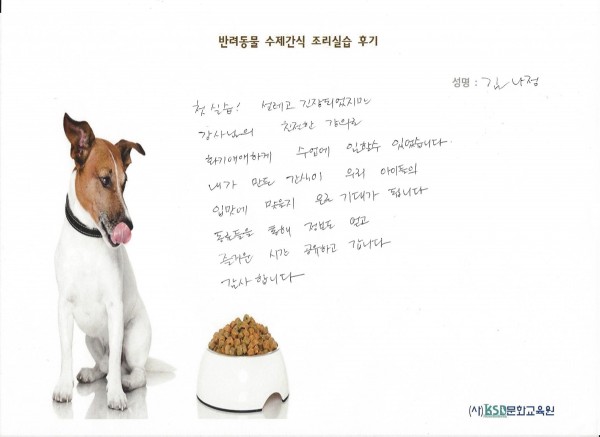 반려동물 수제간식 조리실습 후기
성명 : 김 나정
첫 실습! 설레고 긴장되었지만
강사님의 친절한 강의로
화기애애하게 수업에 임할수 있었습니다.
내가 만든 간식이 우리 아이들의
입맛에 맞을지 기대가 됩니다
동료들을 통해 정보도 얻고
즐거운 시간 공유하고 갑니다
감사합니다
(사)KSD문화교육원